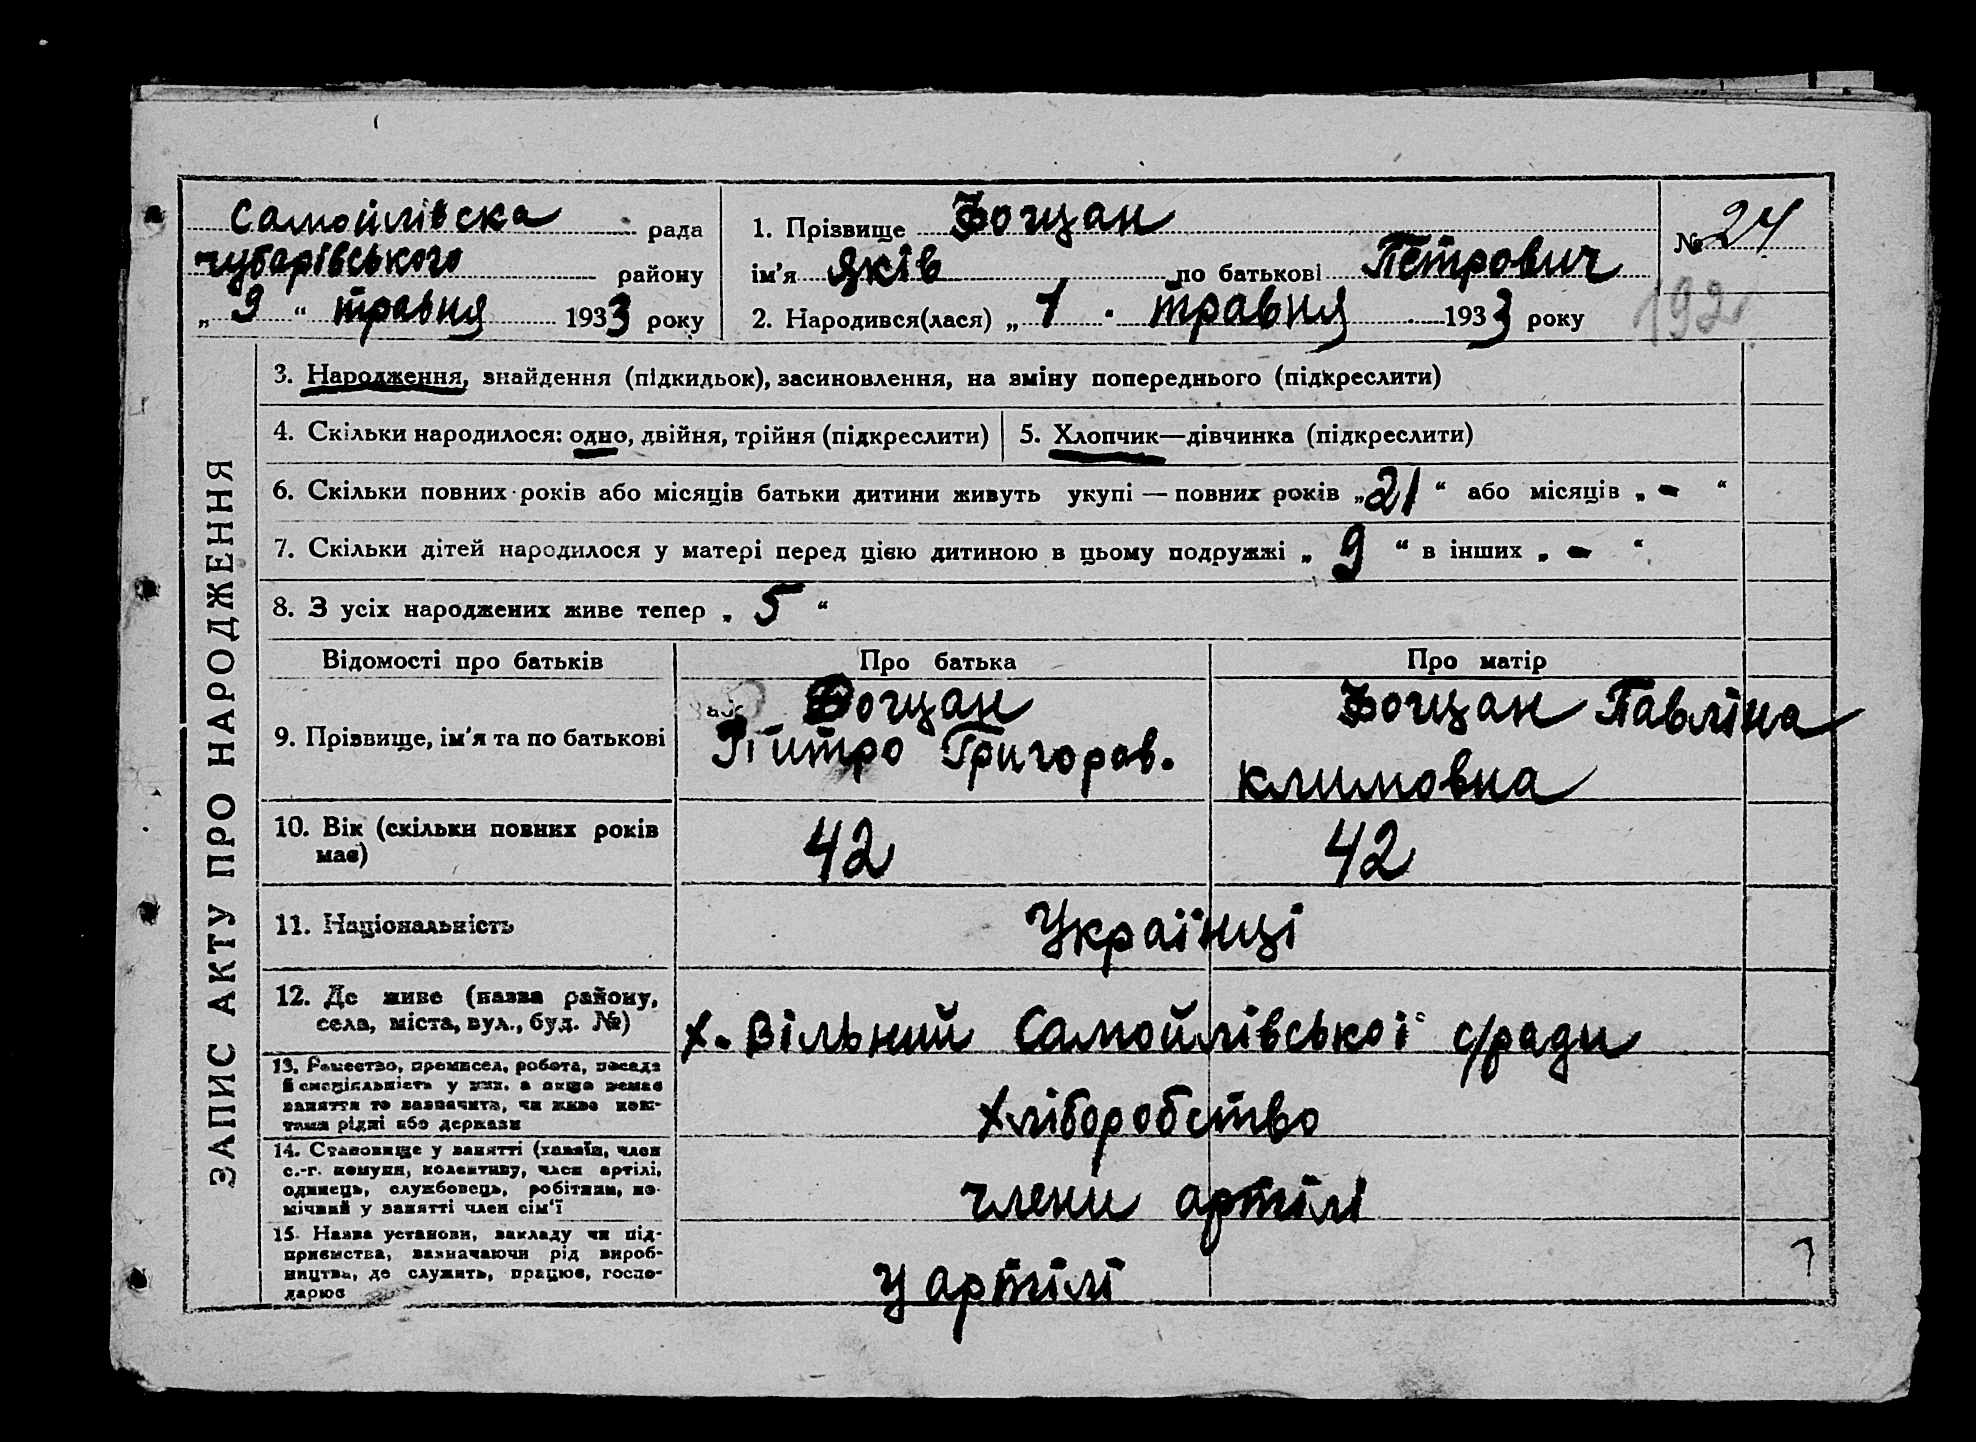 Самойлівска рада
чубарівського району
„ 9 “ травня 1933 року
1. Прізвище Боцан
ім'я яків по батькові Петрович
2. Народився(лася) „ 1 · травня 1933 року
№ 24
192
ЗАПИС АКТУ ПРО НАРОДЖЕННЯ
3. Народження, знайдення (підкидьок), засиновлення, на зміну попереднього (підкреслити)
4. Скільки народилося: одно, двійня, трійня (підкреслити)
5. Хлопчик—дівчинка (підкреслити)
6. Скільки повних років або місяців батьки дитини живуть укупі — повних років „21“ або місяців „ - “
7. Скільки дітей народилося у матері перед цією дитиною в цьому подружжі „ 9 “ в інших „ - “
8. З усіх народжених живе тепер „ 5 “
Відомості про батьків
Про батька
Про матір
9. Прізвище, ім'я та по батькові
Боцан
Питро Григоров.
Боцан Павліна
климовна
10. Вік (скільки повних років
має)
42
42
11. Національність
Українці
12. Де живе (назва району,
села, міста, вул., буд. №)
х. Вільний Самойлівської с/ради
13. Ремество, промисел, робота, посада
й спеціяльність у них, а якщо немає
заняття то зазначити, чи живе кош-
тами рідні або держави
хліборобство
14. Становище у занятті (хазяїн, член
с.-г. комуни, колективу, член артілі,
одинець, службовець, робітник, по-
мічний у занятті член сім'ї
члени артілі
15. Назва установи, закладу чи під-
приємства, зазначаючи рід вироб-
ництва, де служить, працює, госпо-
дарює
у артілі